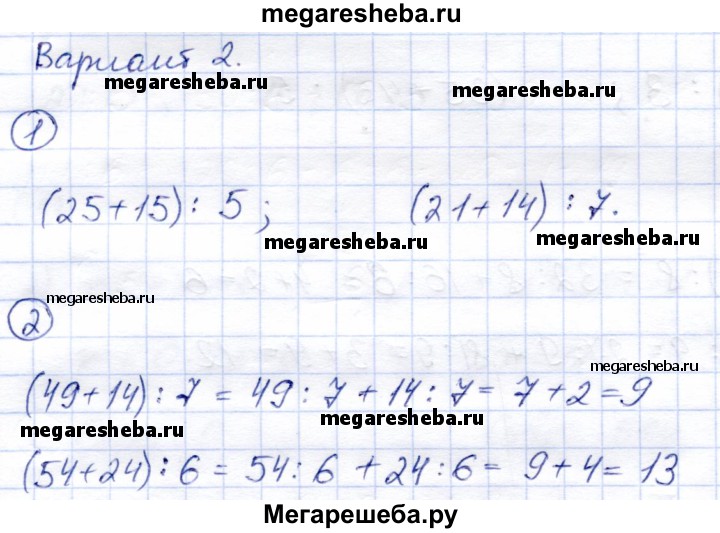 megaresheba.ru
Вариант 2.
megaresheba.ru
megaresheba.ru
1
(25+15) : 5 ; (21+14) : 7.
megaresheba.ru
megaresheba.ru
megaresheba.ru
2
megaresheba.ru
(49+14) : 7 = 49 : 7 + 14 : 7 = 7 + 2 = 9
megaresheba.ru
megaresheba.ru
(54+24) : 6 = 54 : 6 + 24 : 6 = 9 + 4 = 13
Мегарешеба.ру